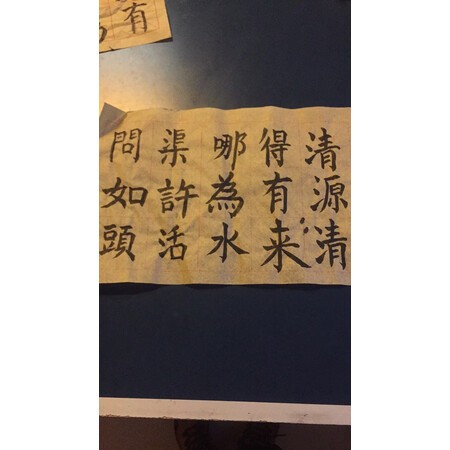 有
問渠哪得清
如許為有源
頭活水来清